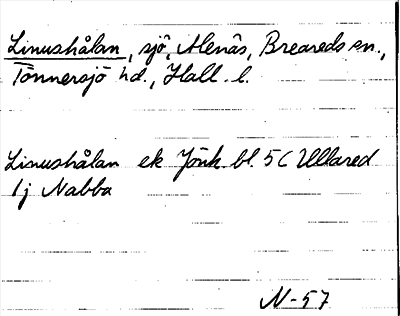 Linushålan, sjö, Alenäs, Breareds sn.,
Tönnersjö hd., Hall. l.
Linushålan ek Jönk bl. 5C Ullared
1j Nabba
N-57